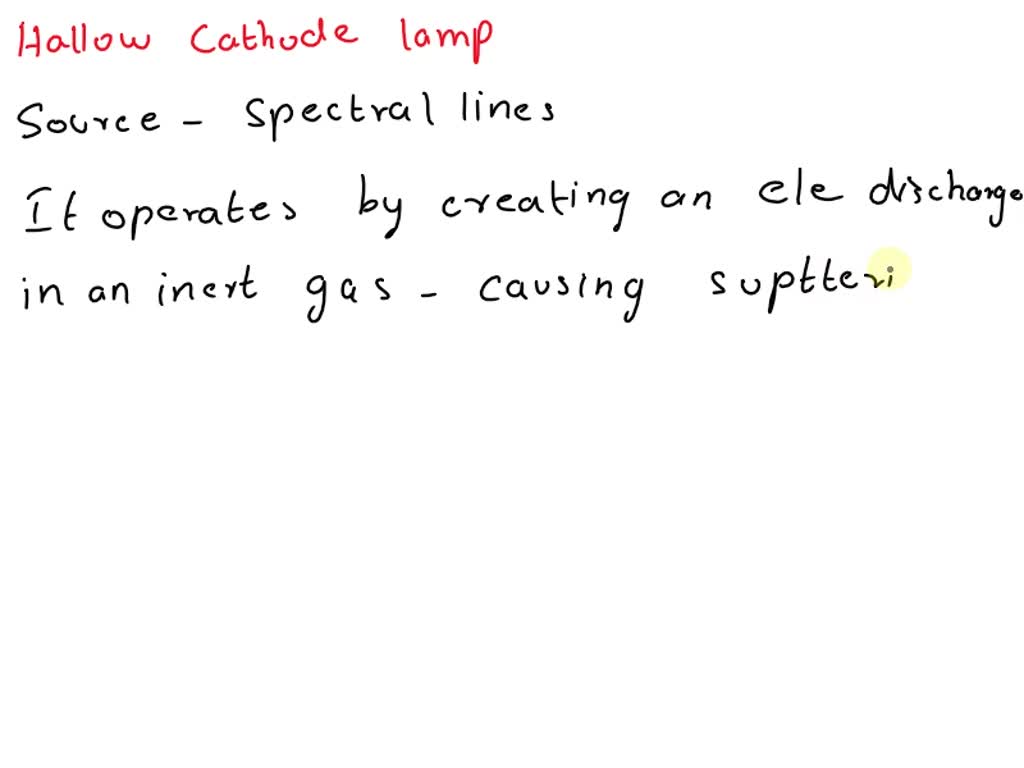 Hallow Cathode lamp
Source - Spectral lines
It operates by creating an ele discharge
in an inert gas - causing suptteri